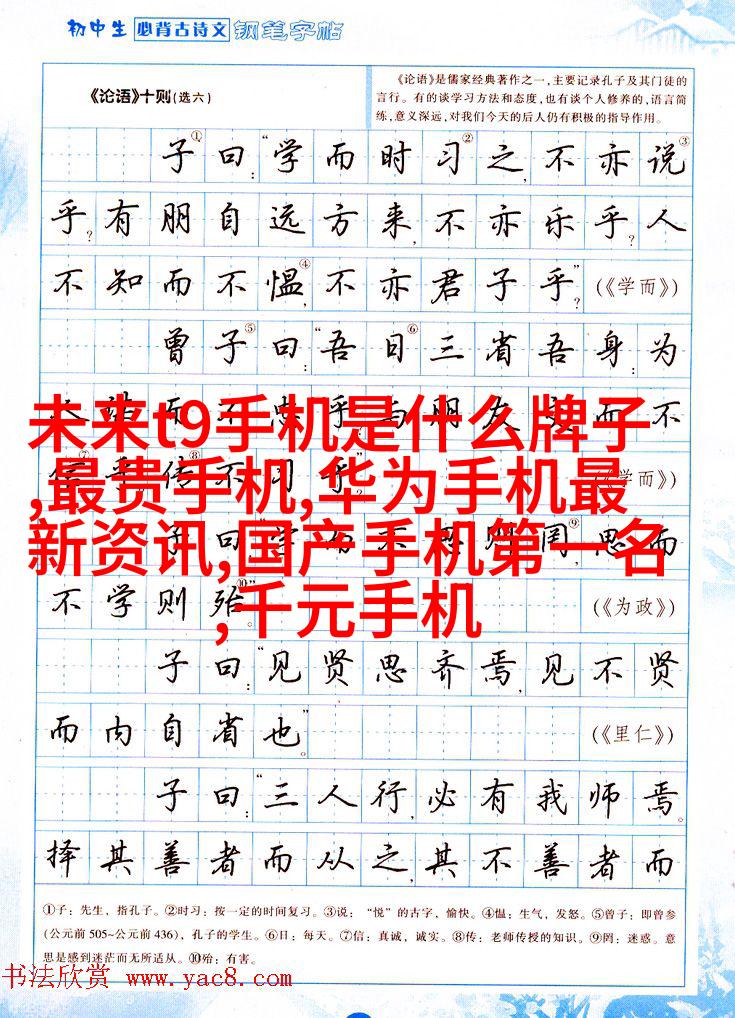 初中生 必背古诗文 钢笔字帖
《论语》十则(选六)
《论语》是儒家经典著作之一,主要记录孔子及其门徒的
言行。有的谈学习方法和态度,也有谈个人修养的,语言简
练,意义深远,对我们今天的后人仍有积极的指导作用。
子①曰:“学而时习②之,不亦说③
乎?有朋自远方来,不亦乐乎?人
不知而不愠④,不亦君子乎?”(《学而》)
曾子⑤曰:“吾日⑥三省吾身:为
不
(《学而》)
未来t9手机是什么牌子
,最贵手机,华为手机最
新资讯,国产手机第一名
,千元手机
思而
不学则殆⑩。”(《为政》)
子曰:“见贤思齐焉,见不贤
而内自省也。”(《里仁》)
子曰:“三人行,必有我师焉。
择其善者而从之,其不善者而
①子:先生,指孔子。②时习:按一定的时间复习。③说:“悦”的古字,愉快。④愠:生气,发怒。⑤曾子:即曾参
(公元前505~公元前436),孔子的学生。⑥日:每天。⑦信:真诚,诚实。⑧传:老师传授的知识。⑨罔:迷惑。意
思是感到迷茫而无所适从。⑩殆:有害。
书法欣赏 www.yac8.com